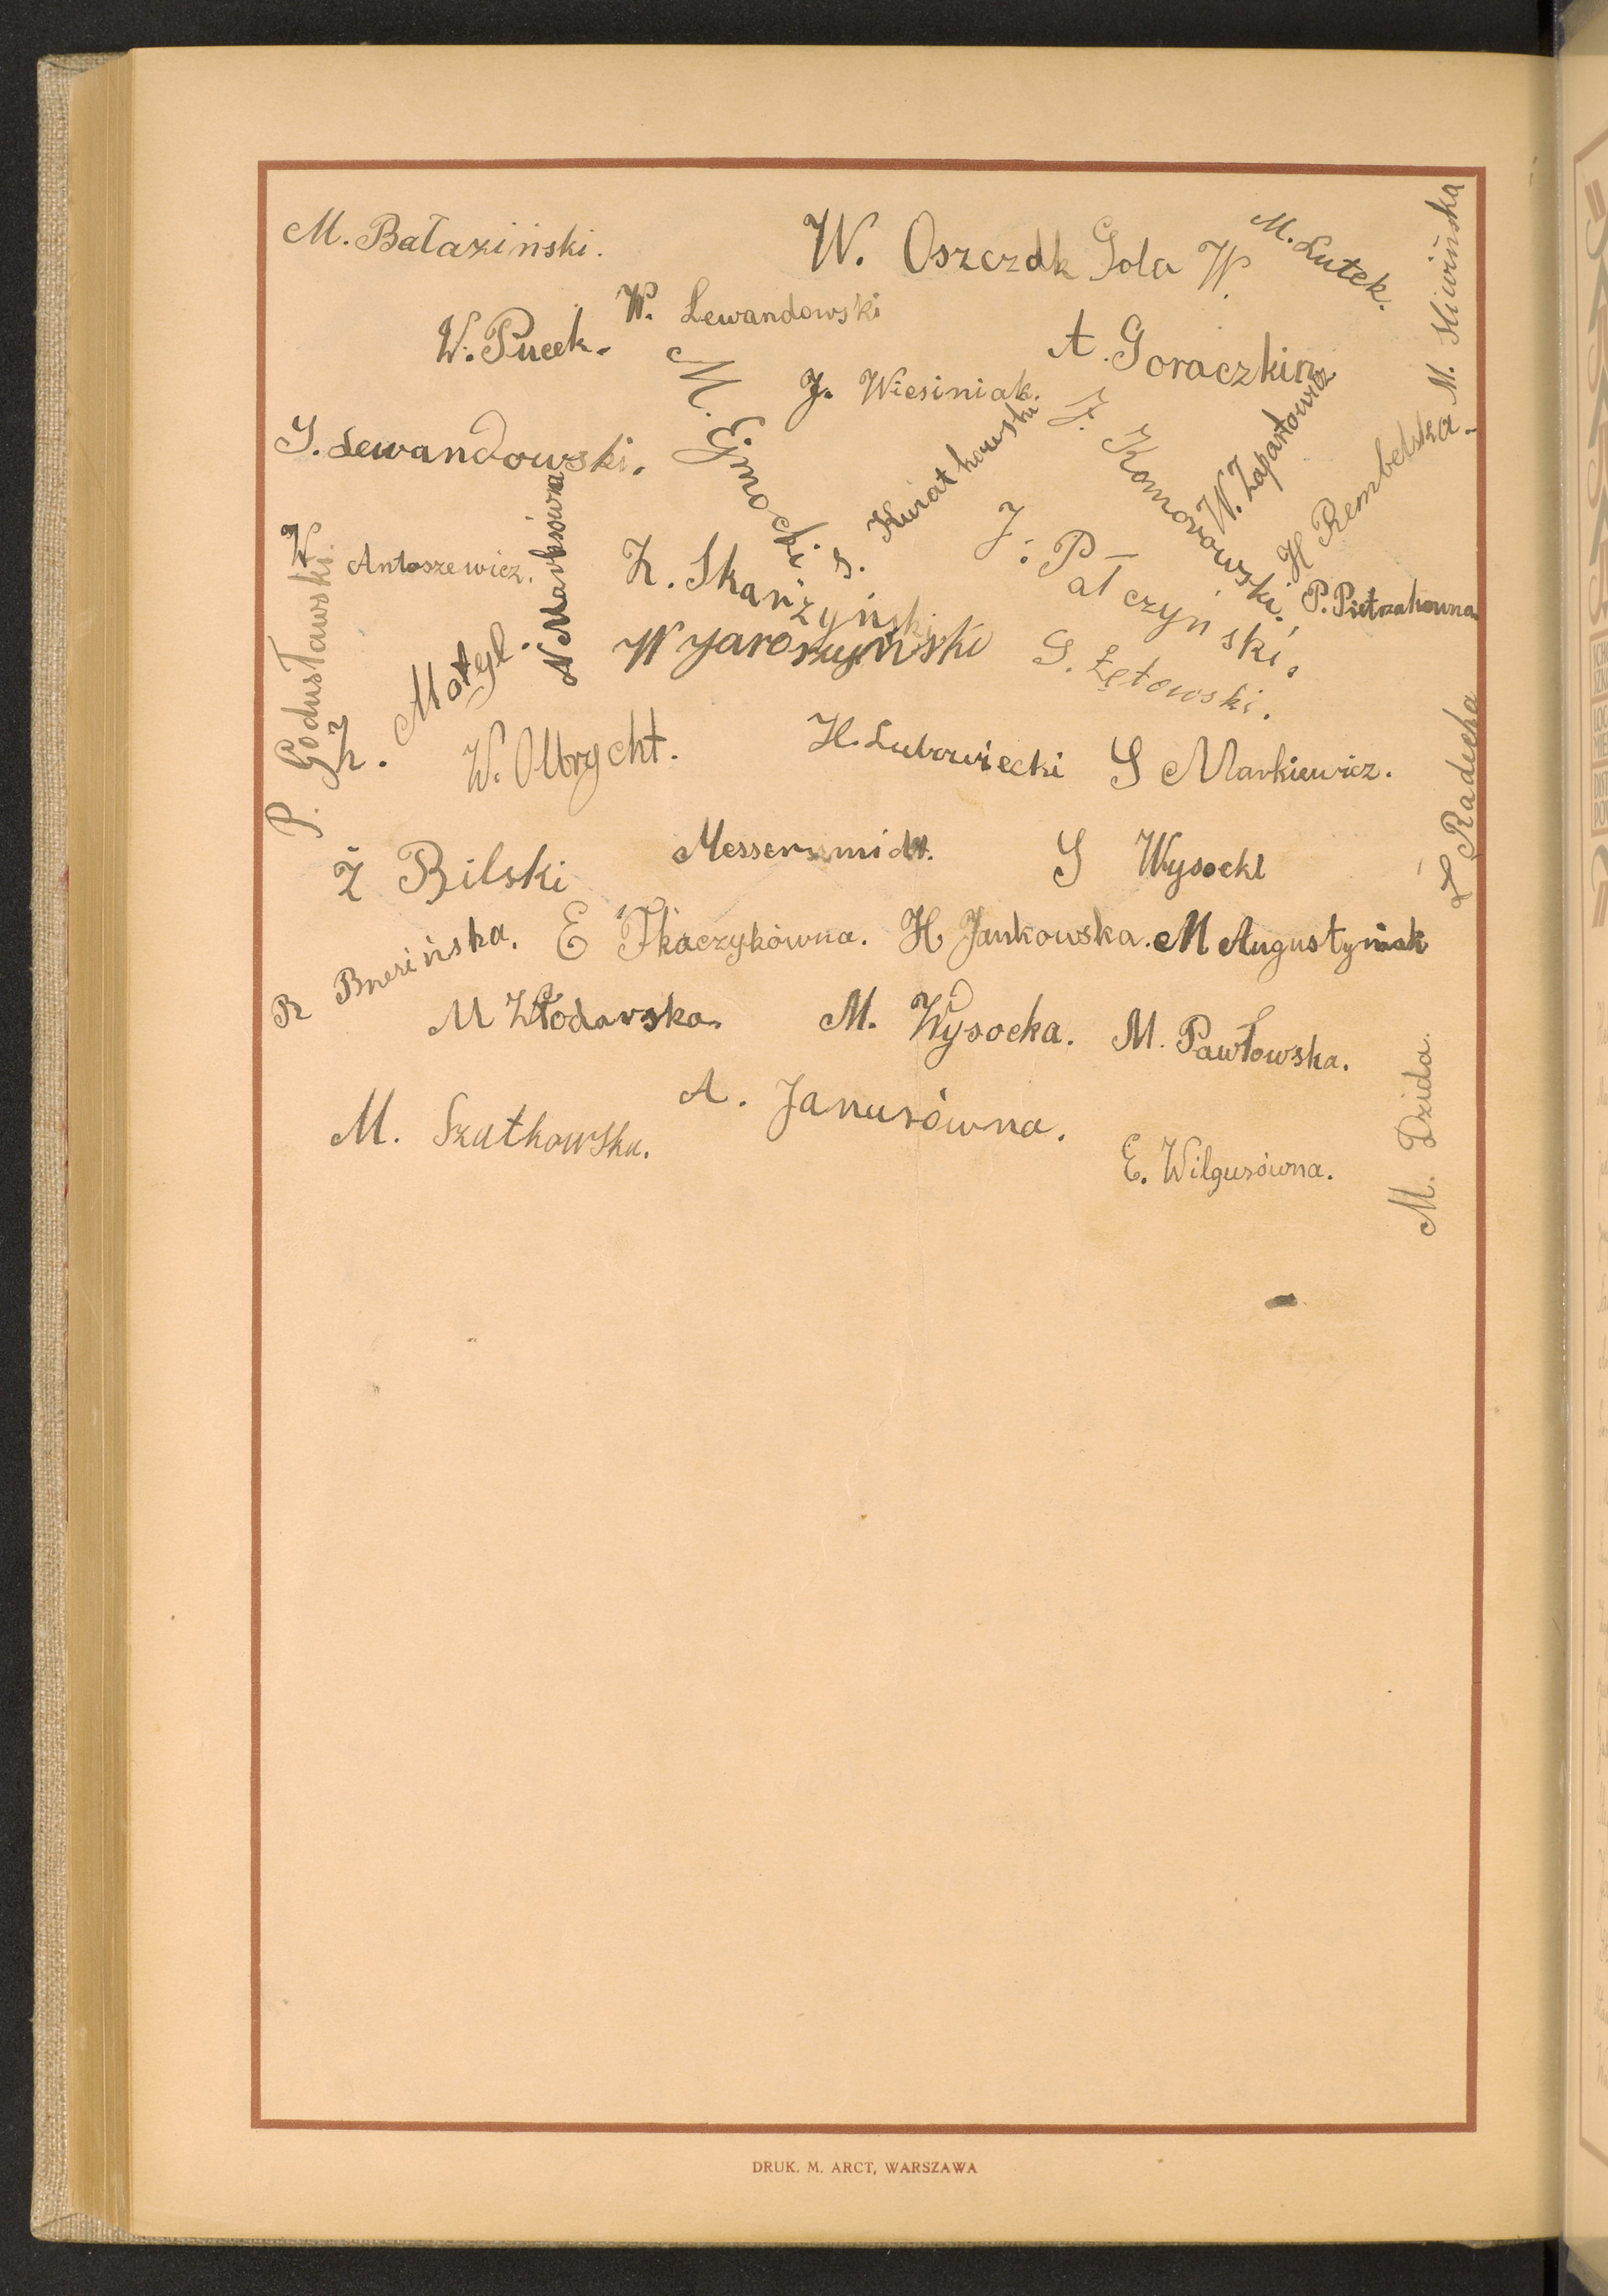 M. Bałaziński.
W. Oszczdk
Gola W.
M. Lutek.
M. Sliwińska
W. Lewandowski
W. Pucek.
A. Goraczkin
M. Ejmocki
J. Wiesiniak.
S. Lewandowski.
S. Kwiatkowski
J. Komorowski.
W. Zapartowicz
H Rembelska.
W Antoszewicz.
N Marksówna
Z. Skarżyński
J. Patczyński.
P. Pietrzakowna
P. Godusławski.
Ż. Motyl.
W Jaroszyński
S. Łętowski.
W. Olbrycht.
H. Lubowiecki
S Markiewicz.
Ż Bilski
Messersmidt.
S Wysocki
Ł Radecka
R Brzezińska.
E Tkaczykówna.
H Jankowska.
M Augustyniak
M Włodarska.
M. Wysocka.
M. Pawłowska.
M. Szutkowska.
A. Janusówna.
E. Wilgusówna.
M. Dzida.
DRUK. M. ARCT, WARSZAWA